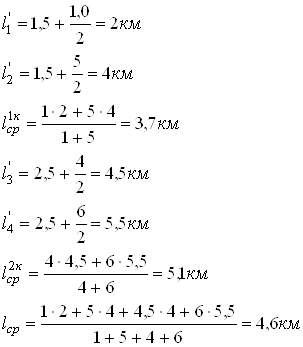 l₁' = 1,5 + 1,0/2 = 2км
l₂' = 1,5 + 5/2 = 4км
l_ср^1к = (1·2 + 5·4)/(1 + 5) = 3,7км
l₃' = 2,5 + 4/2 = 4,5км
l₄' = 2,5 + 6/2 = 5,5км
l_ср^2к = (4·4,5 + 6·5,5)/(4 + 6) = 5,1км
l_ср = (1·2 + 5·4 + 4,5·4 + 6·5,5)/(1 + 5 + 4 + 6) = 4,6км